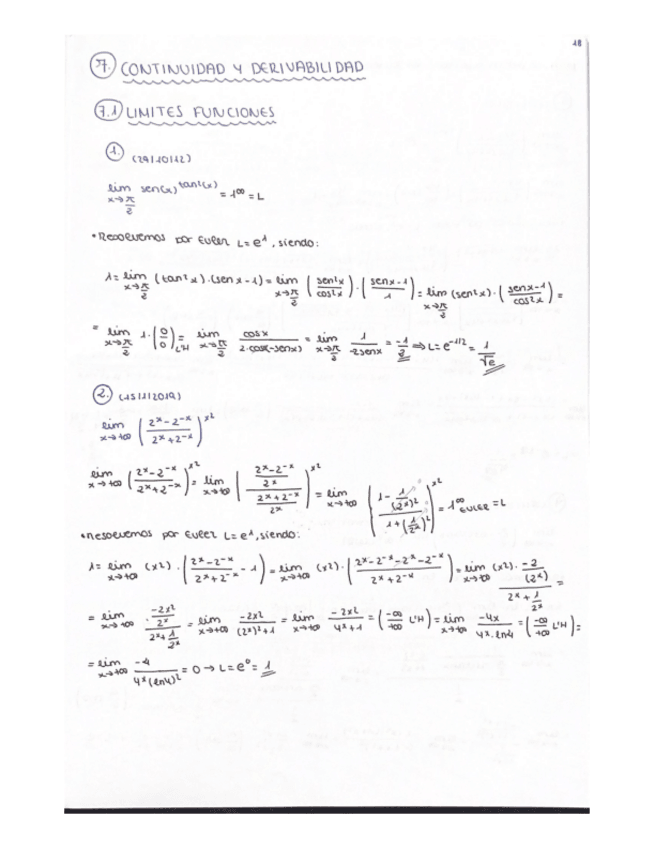 18
7. CONTINUIDAD Y DERIVABILIDAD
7.1 LIMITES FUNCIONES
1. (29/10/12)
lim x→π/2 sen(x)^tan²(x) = 1^∞ = L
• Resolvemos por Euler L=e^λ, siendo:
λ = lim x→π/2 (tan²x)·(senx-1) = lim x→π/2 (sen²x/cos²x)·(senx-1/1) = lim x→π/2 (sen²x)·(senx-1/cos²x) =
= lim x→π/2 1·(0/0) =L'H lim x→π/2 cosx/2·cosx(-senx) = lim x→π/2 1/-2senx = -1/2 ⇒ L=e^-1/2 = 1/√e
2. (15/1/2019)
lim x→+∞ (2^x-2^-x/2^x+2^-x)^x²
lim x→+∞ (2^x-2^-x/2^x+2^-x)^x² = lim x→+∞ ((2^x-2^-x/2^x)/(2^x+2^-x/2^x))^x² = lim x→+∞ ((1-1/(2^x)²)/(1+(1/2^x)²))^x² = 1^∞ EULER = L
• Resolvemos por Euler L=e^λ, siendo:
λ = lim x→+∞ (x²)·(2^x-2^-x/2^x+2^-x - 1) = lim x→+∞ (x²)·(2^x-2^-x-2^x-2^-x/2^x+2^-x) = lim x→+∞ (x²)·(-2/(2^x))/(2^x+1/2^x) =
= lim x→+∞ (-2x²/2^x)/(2^x+1/2^x) = lim x→+∞ -2x²/(2^x)²+1 = lim x→+∞ -2x²/4^x+1 = (-∞/+∞ L'H) = lim x→+∞ -4x/4^x·ln4 = (-∞/+∞ L'H) =
= lim x→+∞ -4/4^x(ln4)² = 0 → L=e^0 = 1